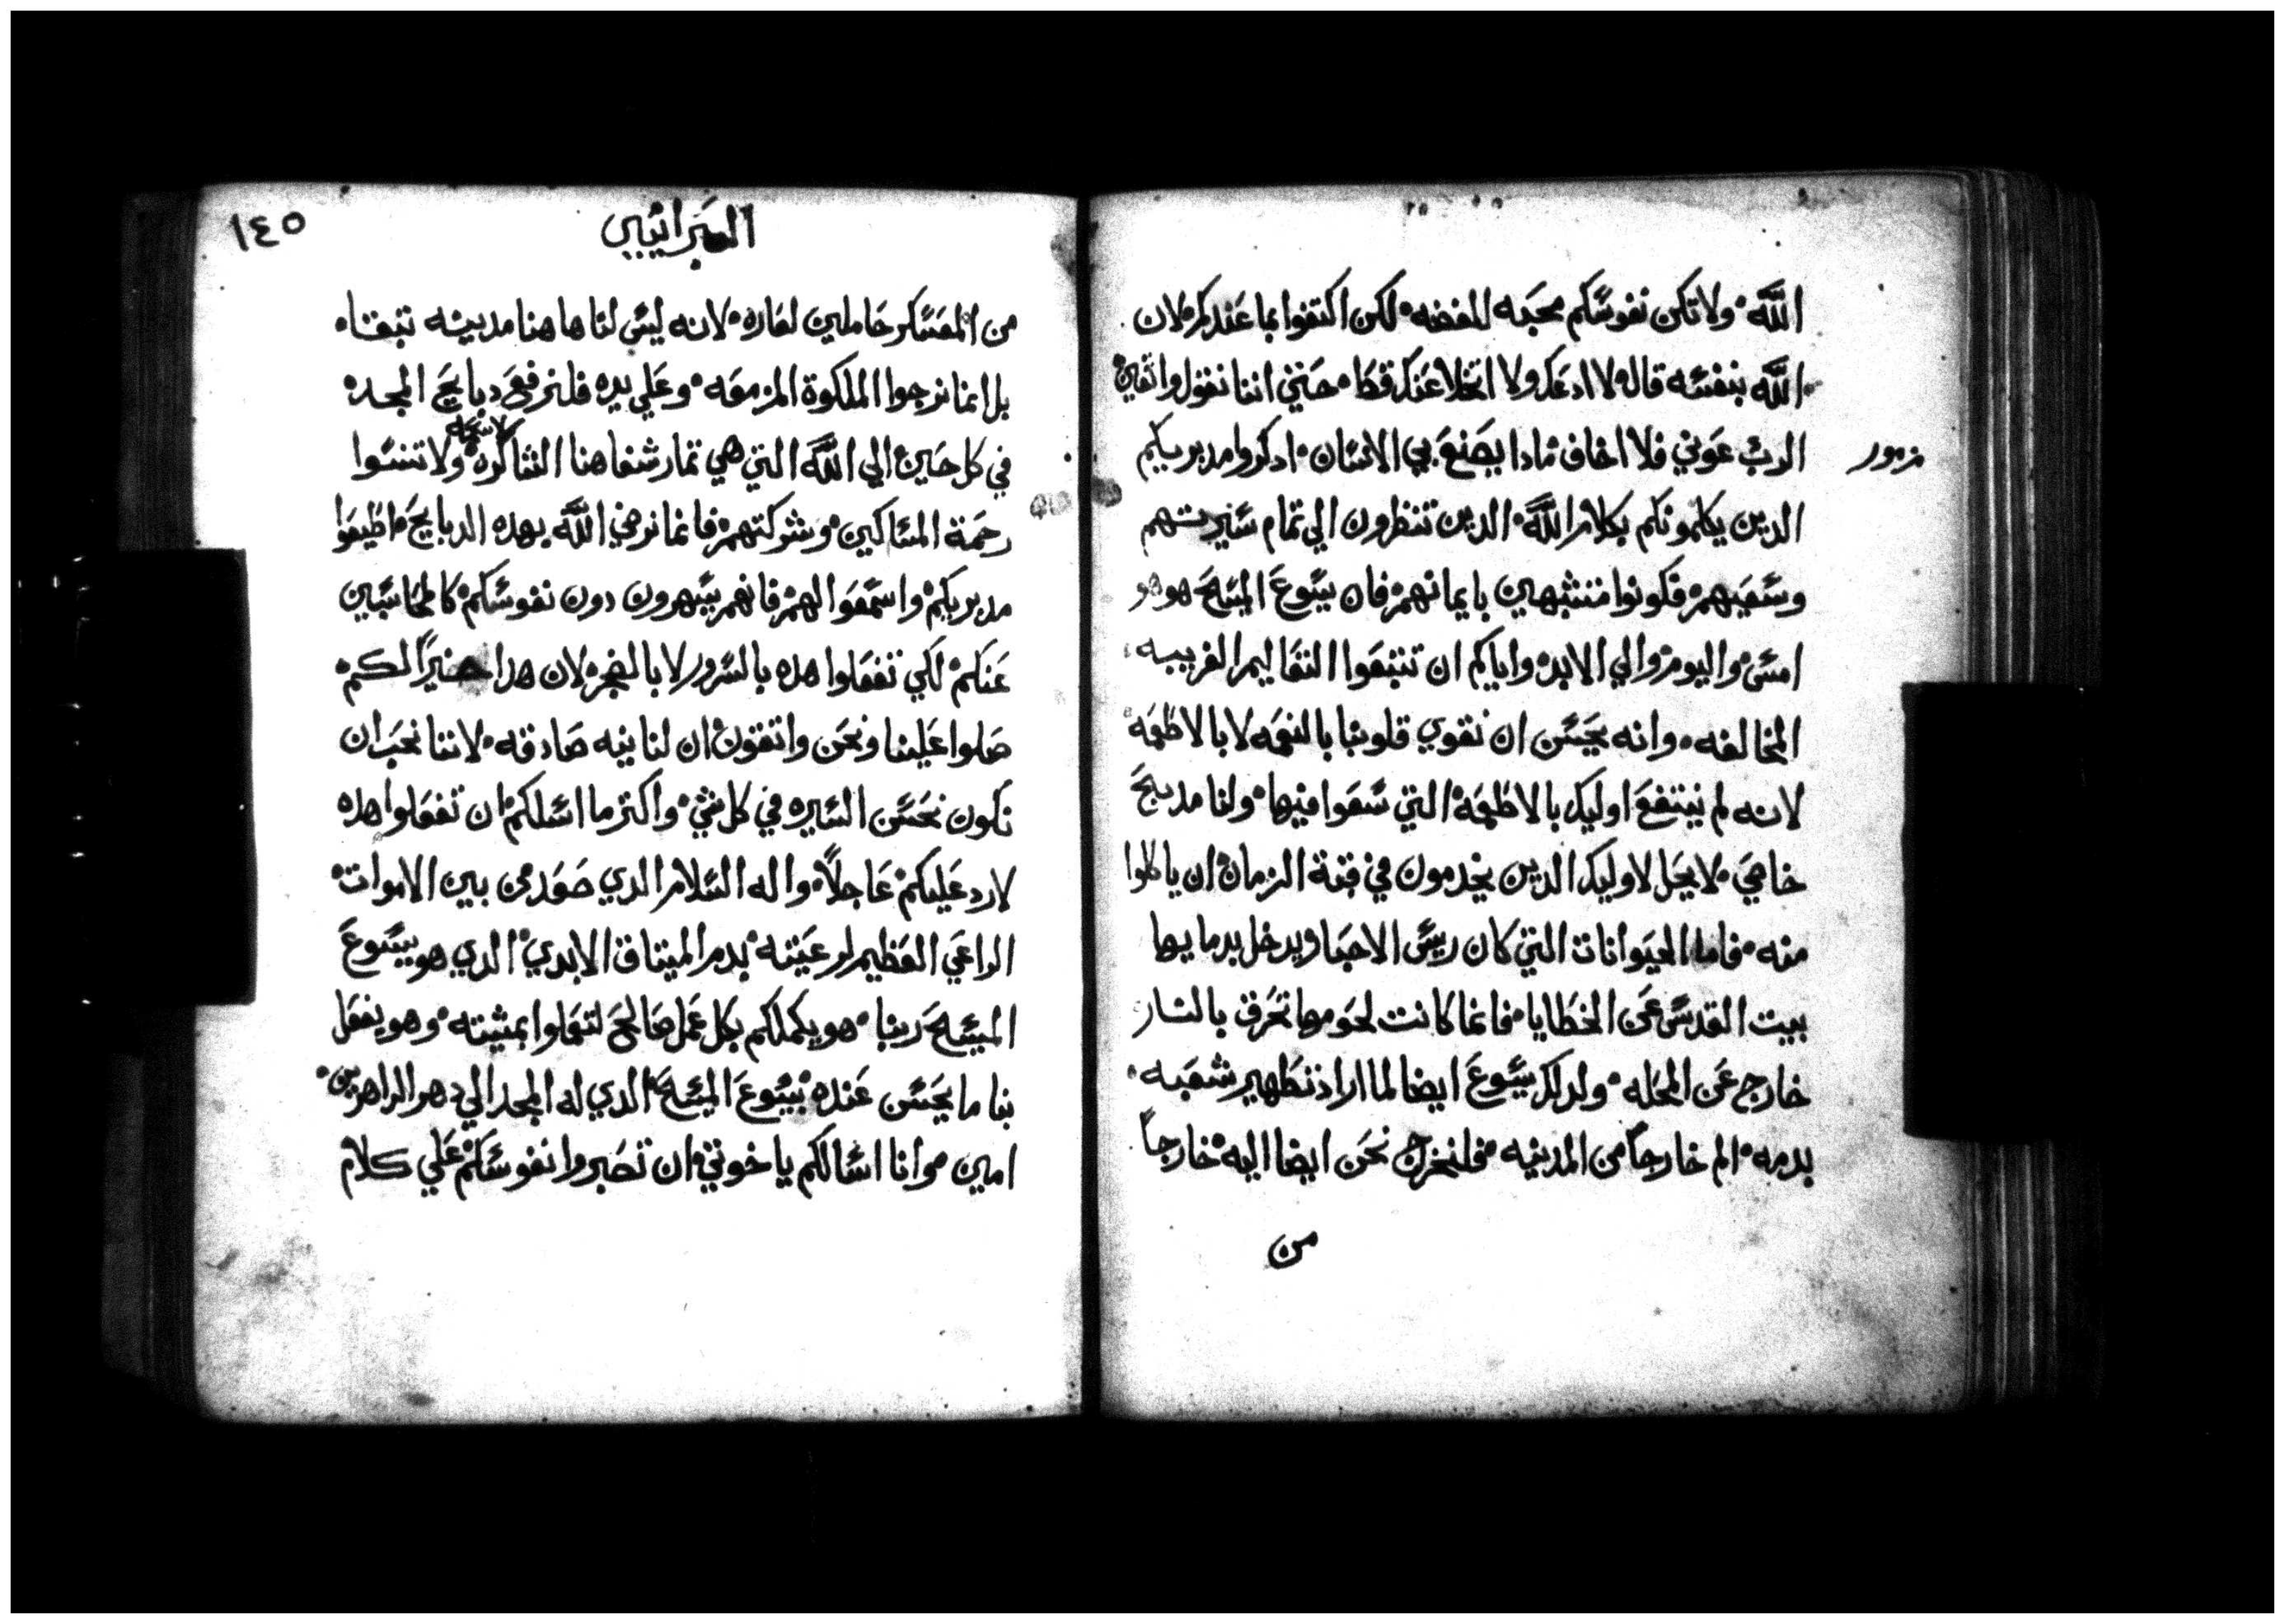 الله ولا تكن نفوسكم محبه للفضه لكن اكتفوا بما عندكم لان
الله بنفسه قال لا ادعك ولا اتخلا عنك قط حتي اننا نقول واثقين
الرب عوني فلا اخاف مادا يصنع بي الانسان ادكروا مدبريكم
مزمور
الدين يكلمونكم بكلام الله الدين تنظرون الي تمام سيرتهم
وسعيهم فكونوا متشبهين بايمانهم فان يسوع المسيح هو هو
امس واليوم والي الابد واياكم ان تتبعوا التعاليم الغريبه
المخالفه وانه يحسن ان نقوي قلوبنا بالنعمه لا بالاطعمه
لانه لم ينتفع اوليك بالاطعمة التي سعوا فيها ولنا مدبح
خاص لا يحل لاوليك الدين يخدمون في قبة الزمان ان ياكلوا
منه فاما الحيوانات التي كان رييس الاحبار يدخل بدمايها
بيت القدس عن الخطايا فانما كانت لحومها تحرق بالنار
خارج عن المحله ولدلك يسوع ايضا لما اراد تطهير شعبه
بدمه الم خارجاً من المدينه فلنخرج نحن ايضا اليه خارجاً
من
العبرانيين
١٤٥
من المعسكر حاملين لعاره لانه ليس لنا هاهنا مدينه تبقا
بل انما نرجوا الملكوة المزمعه وعلي يده فلنرفع دبايح المجد
في كل حين الي الله التي هي تمار شفاهنا الشاكره لاسمه ولا تنسوا
رحمة المساكين وشركتهم فانما نرضي الله بهده الدبايح اطيعوا
مدبريكم واسمعوا لهم فانهم يسهرون دون نفوسكم كالمحاسبين
عنكم لكي تفعلوا هده بالسرور لا بالضجر لان هدا خيراً لكم
صلوا علينا ونحن واتقون ان لنا نيه صادقه لاننا نحب ان
نكون نحسن السيره في كل شي واكتر ما اسلكم ان تفعلوا هده
لارد عليكم عاجلاً واله السلام الدي صعد من بين الاموات
الراعي العظيم لرعيته بدم الميتاق الابدي الدي هو يسوع
المسيح ربنا هو يكملكم بكل عمل صالح لتعملوا بمشيته وهو يفعل
بنا ما يحسن عنده بيسوع المسيح الدي له المجد الي دهر الداهرين
امين وانا اسالكم ياخوتي ان تصبروا نفوسكم علي كلام